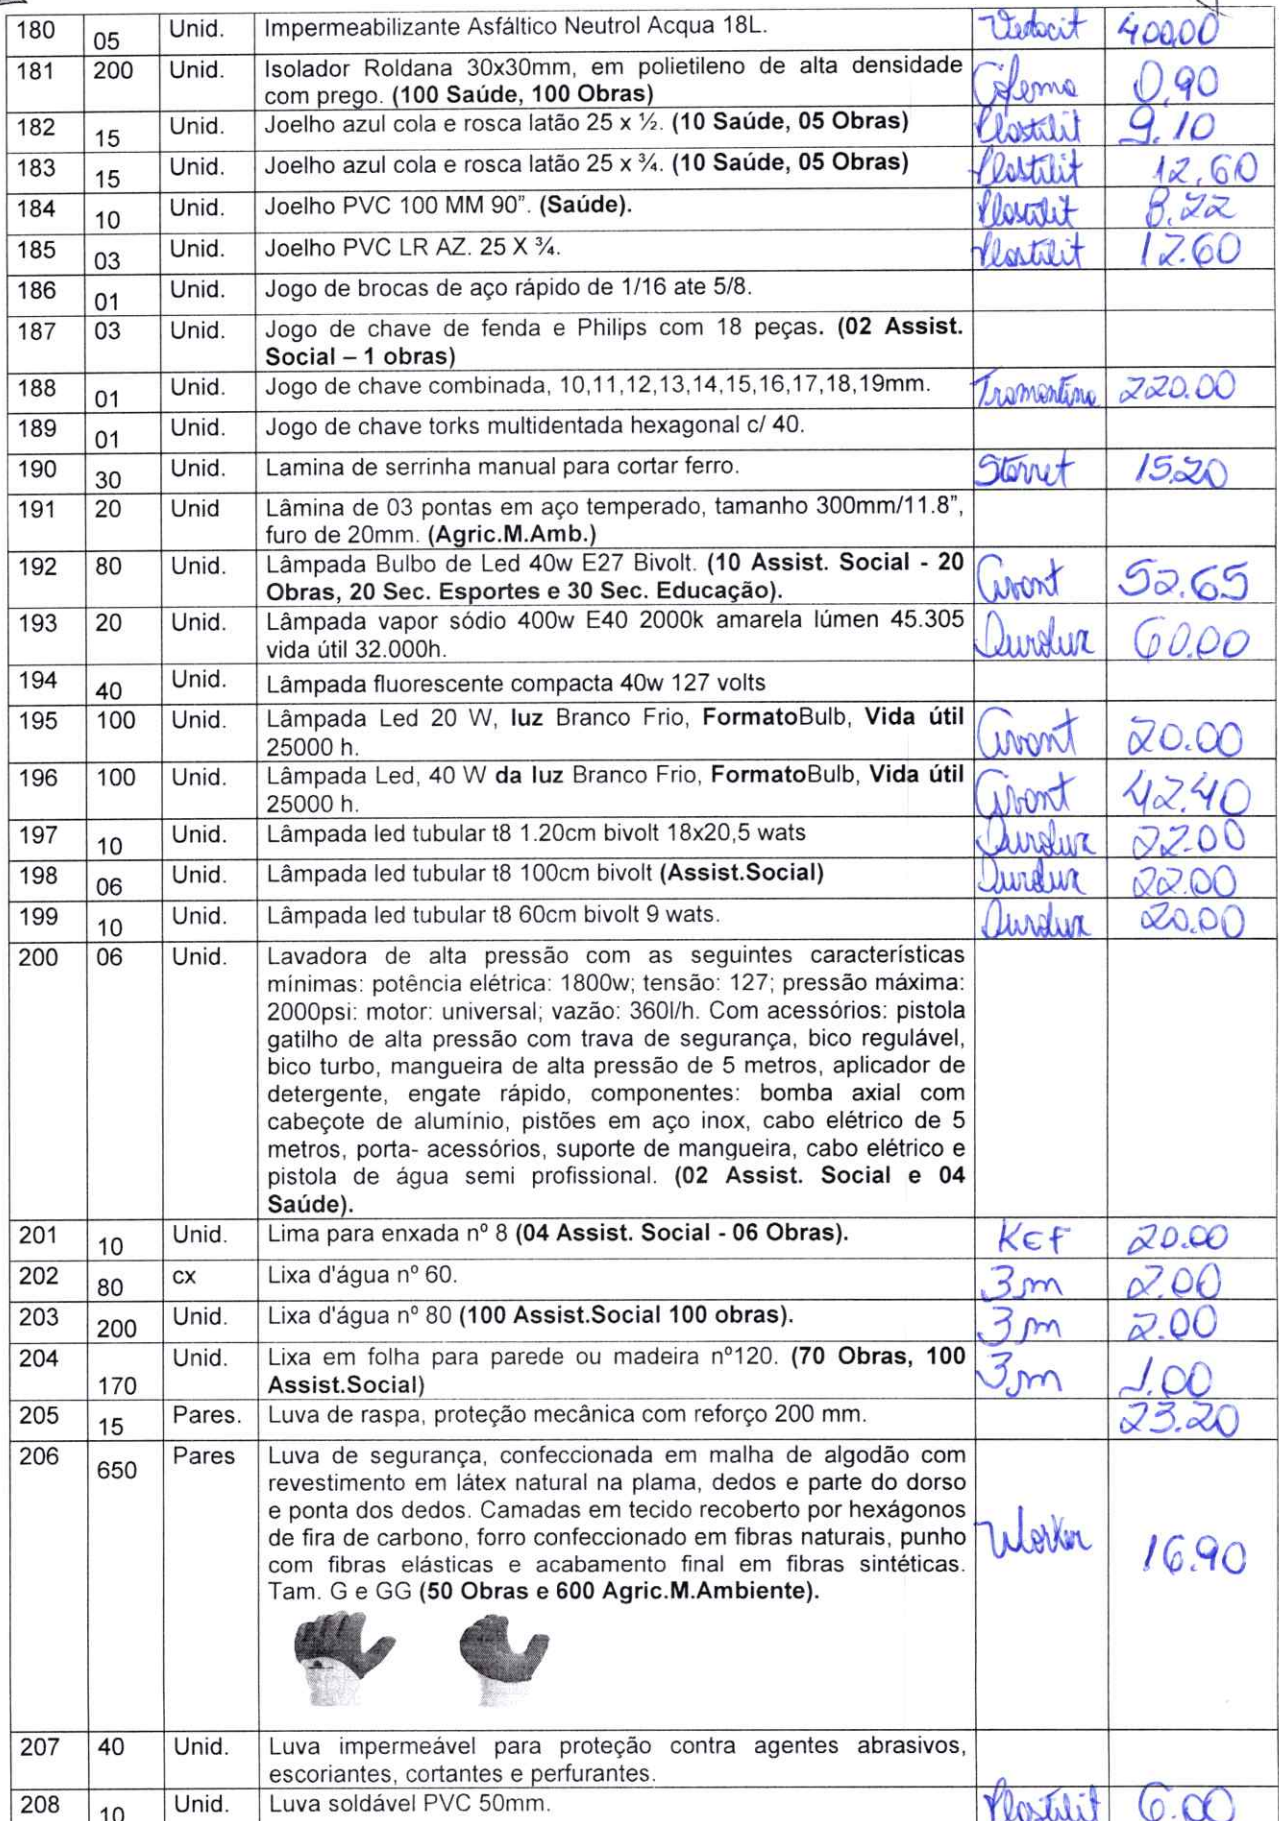 180 05 Unid. Impermeabilizante Asfáltico Neutrol Acqua 18L. Vedacit 400.00
181 200 Unid. Isolador Roldana 30x30mm, em polietileno de alta densidade
com prego. (100 Saúde, 100 Obras) 0,90
182 15 Unid. Joelho azul cola e rosca latão 25 x ½. (10 Saúde, 05 Obras) Plastilit 9.10
183 15 Unid. Joelho azul cola e rosca latão 25 x ¾. (10 Saúde, 05 Obras) Plastilit 12.60
184 10 Unid. Joelho PVC 100 MM 90”. (Saúde). Plastilit 8.22
185 03 Unid. Joelho PVC LR AZ. 25 X ¾. Plastilit 12.60
186 01 Unid. Jogo de brocas de aço rápido de 1/16 ate 5/8.
187 03 Unid. Jogo de chave de fenda e Philips com 18 peças. (02 Assist.
Social – 1 obras)
188 01 Unid. Jogo de chave combinada, 10,11,12,13,14,15,16,17,18,19mm. Tramontina 220.00
189 01 Unid. Jogo de chave torks multidentada hexagonal c/ 40.
190 30 Unid. Lamina de serrinha manual para cortar ferro. Starret 15.20
191 20 Unid Lâmina de 03 pontas em aço temperado, tamanho 300mm/11.8”,
furo de 20mm. (Agric.M.Amb.)
192 80 Unid. Lâmpada Bulbo de Led 40w E27 Bivolt. (10 Assist. Social - 20
Obras, 20 Sec. Esportes e 30 Sec. Educação). Avant 52.65
193 20 Unid. Lâmpada vapor sódio 400w E40 2000k amarela lúmen 45.305
vida útil 32.000h. Ourolux 60.00
194 40 Unid. Lâmpada fluorescente compacta 40w 127 volts
195 100 Unid. Lâmpada Led 20 W, luz Branco Frio, FormatoBulb, Vida útil
25000 h. Avant 20.00
196 100 Unid. Lâmpada Led, 40 W da luz Branco Frio, FormatoBulb, Vida útil
25000 h. Avant 42.40
197 10 Unid. Lâmpada led tubular t8 1.20cm bivolt 18x20,5 wats Ourolux 22.00
198 06 Unid. Lâmpada led tubular t8 100cm bivolt (Assist.Social) Ourolux 22.00
199 10 Unid. Lâmpada led tubular t8 60cm bivolt 9 wats. Ourolux 20.00
200 06 Unid. Lavadora de alta pressão com as seguintes características
mínimas: potência elétrica: 1800w; tensão: 127; pressão máxima:
2000psi: motor: universal; vazão: 360l/h. Com acessórios: pistola
gatilho de alta pressão com trava de segurança, bico regulável,
bico turbo, mangueira de alta pressão de 5 metros, aplicador de
detergente, engate rápido, componentes: bomba axial com
cabeçote de alumínio, pistões em aço inox, cabo elétrico de 5
metros, porta- acessórios, suporte de mangueira, cabo elétrico e
pistola de água semi profissional. (02 Assist. Social e 04
Saúde).
201 10 Unid. Lima para enxada nº 8 (04 Assist. Social - 06 Obras). KEF 20.00
202 80 cx Lixa d'água nº 60. 3m 2.00
203 200 Unid. Lixa d'água nº 80 (100 Assist.Social 100 obras). 3m 2.00
204 170 Unid. Lixa em folha para parede ou madeira nº120. (70 Obras, 100
Assist.Social) 3m 1.00
205 15 Pares. Luva de raspa, proteção mecânica com reforço 200 mm. 23.20
206 650 Pares Luva de segurança, confeccionada em malha de algodão com
revestimento em látex natural na plama, dedos e parte do dorso
e ponta dos dedos. Camadas em tecido recoberto por hexágonos
de fira de carbono, forro confeccionado em fibras naturais, punho
com fibras elásticas e acabamento final em fibras sintéticas.
Tam. G e GG (50 Obras e 600 Agric.M.Ambiente). Worker 16.90
207 40 Unid. Luva impermeável para proteção contra agentes abrasivos,
escoriantes, cortantes e perfurantes.
208 10 Unid. Luva soldável PVC 50mm. Plastilit 6.00